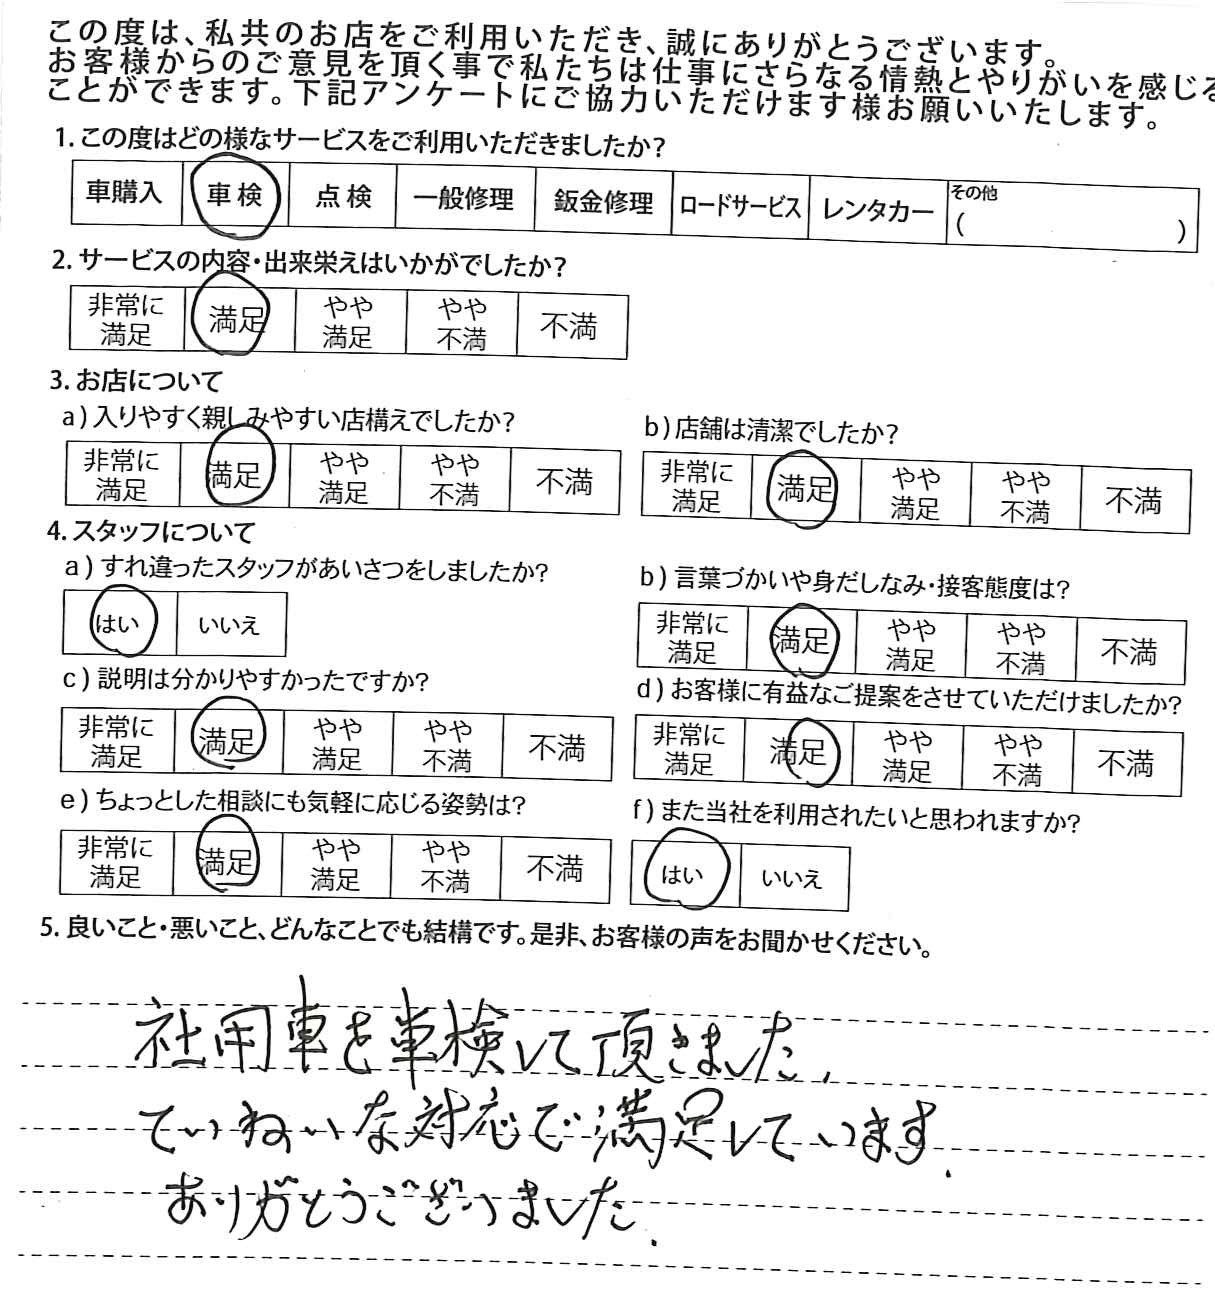 この度は、私共のお店をご利用いただき、誠にありがとうございます。
お客様からのご意見を頂く事で私たちは仕事にさらなる情熱とやりがいを感じる
ことができます。下記アンケートにご協力いただけます様お願いいたします。
1.この度はどの様なサービスをご利用いただきましたか?
車購入 車検 点検 一般修理 鈑金修理 ロードサービス レンタカー その他
( )
2.サービスの内容・出来栄えはいかがでしたか?
非常に 満足 やや やや 不満
満足 満足 不満
3.お店について
a)入りやすく親しみやすい店構えでしたか?
非常に 満足 やや やや 不満
満足 満足 不満
b)店舗は清潔でしたか?
非常に 満足 やや やや 不満
満足 満足 不満
4.スタッフについて
a)すれ違ったスタッフがあいさつをしましたか?
はい いいえ
b)言葉づかいや身だしなみ・接客態度は?
非常に 満足 やや やや 不満
満足 満足 不満
c)説明は分かりやすかったですか?
非常に 満足 やや やや 不満
満足 満足 不満
d)お客様に有益なご提案をさせていただけましたか?
非常に 満足 やや やや 不満
満足 満足 不満
e)ちょっとした相談にも気軽に応じる姿勢は?
非常に 満足 やや やや 不満
満足 満足 不満
f)また当社を利用されたいと思われますか?
はい いいえ
5.良いこと・悪いこと、どんなことでも結構です。是非、お客様の声をお聞かせください。
社用車を車検して頂きました.
ていねいな対応で満足しています.
ありがとうございました.